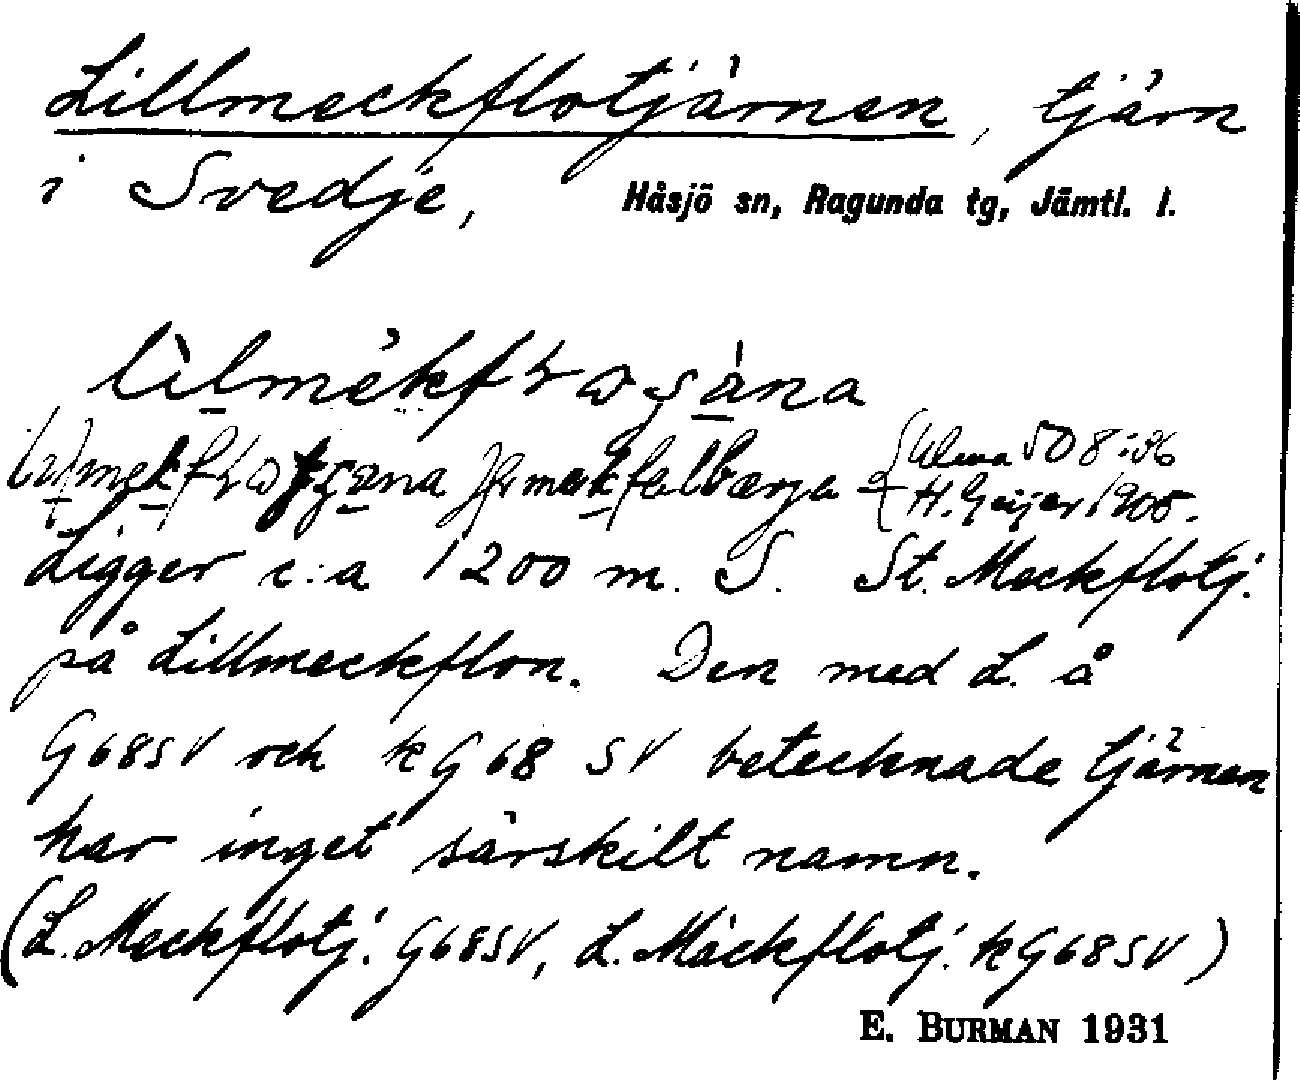 Lillmeckflotjärnen, tjärn
i Svedje, Håsjö sn, Ragunda tg, Jämtl. l.
Ulma 508:36
H. Geijer 1905.
Ligger c:a 1200 m. S. St. Meckflotj.
på Lillmeckflon. Den med L. å
G68SV och kG68 SV betecknade tjärnen
har inget särskilt namn.
(L. Meckflotj. G68SV, L. Mäckflotj. kG68SV)
E. BURMAN 1931